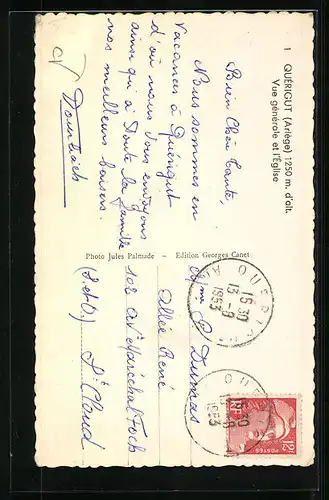 1 QUÉRIGUT (Ariège) 1250 m. d'alt.
Vue générale et l'Église
Bien Chère Tante,
Nous sommes en
vacances à Quérigut
d'où nous vous envoyons
ainsi qu'à toute la famille
nos meilleurs baisers.
Photo Jules Palmade - Edition Georges Canet
QUERIGUT
15 30
13 - 8
1953
Mme Dumas
Allée René
102 Av Maréchal Foch
St Cloud
(S.et.O.)
12F
POSTES